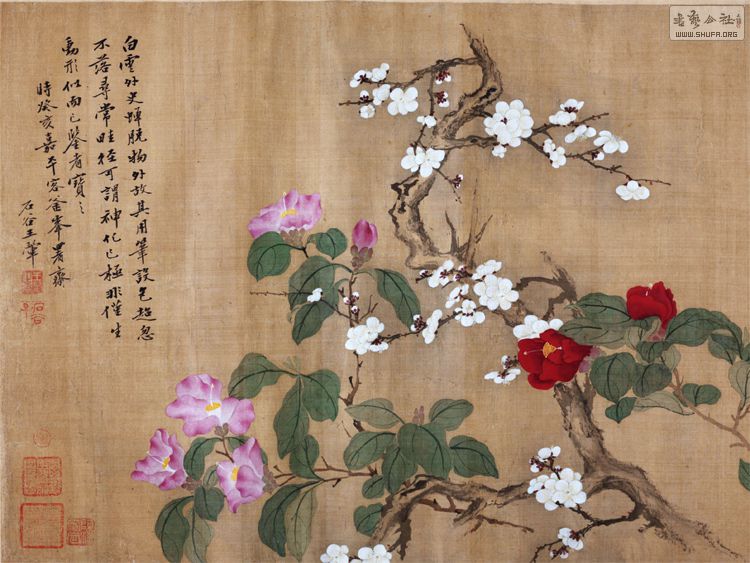 白雲外史蹕脱物外故其用筆設色超忽
不落尋常畦徑可謂神化已極非僅生
動形似而已鑒者寶之
時癸亥嘉平客釜峯署齋
石谷王翬
石谷
書藝公社
www.SHUFA.ORG